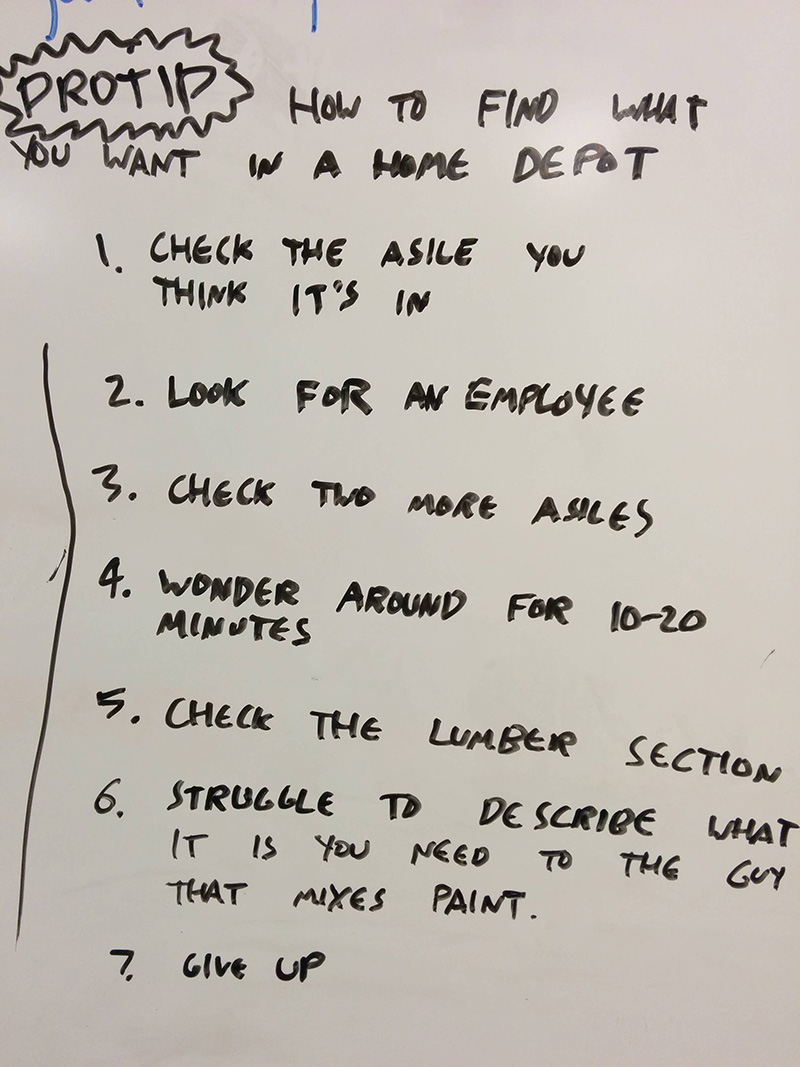 PROTIP HOW TO FIND WHAT
YOU WANT IN A HOME DEPOT
1. CHECK THE ASILE YOU
THINK IT'S IN
2. LOOK FOR AN EMPLOYEE
3. CHECK TWO MORE ASILES
4. WONDER AROUND FOR 10-20
MINUTES
5. CHECK THE LUMBER SECTION
6. STRUGGLE TO DESCRIBE WHAT
IT IS YOU NEED TO THE GUY
THAT MIXES PAINT.
7. GIVE UP